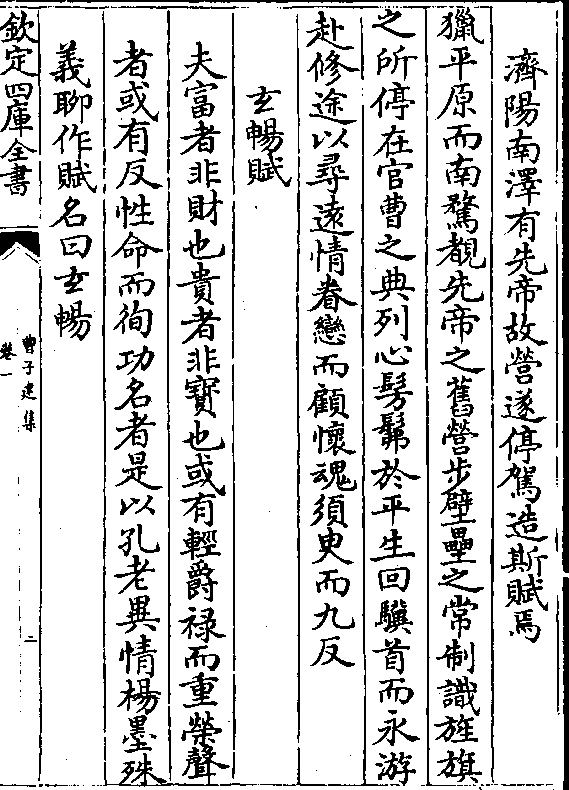 濟陽南澤有先帝故營遂停駕造斯賦焉
獵平原而南騖覩先帝之舊營步壁壘之常制識旌旗
之所停在官曹之典列心髣髴於平生回驥首而永游
赴修途以尋遠情眷戀而顧懷魂須臾而九反
玄暢賦
夫富者非財也貴者非寶也或有輕爵祿而重榮聲
者或有反性命而徇功名者是以孔老異情楊墨殊
義聊作賦名曰玄暢
欽定四庫全書
曹子建集
卷一
二